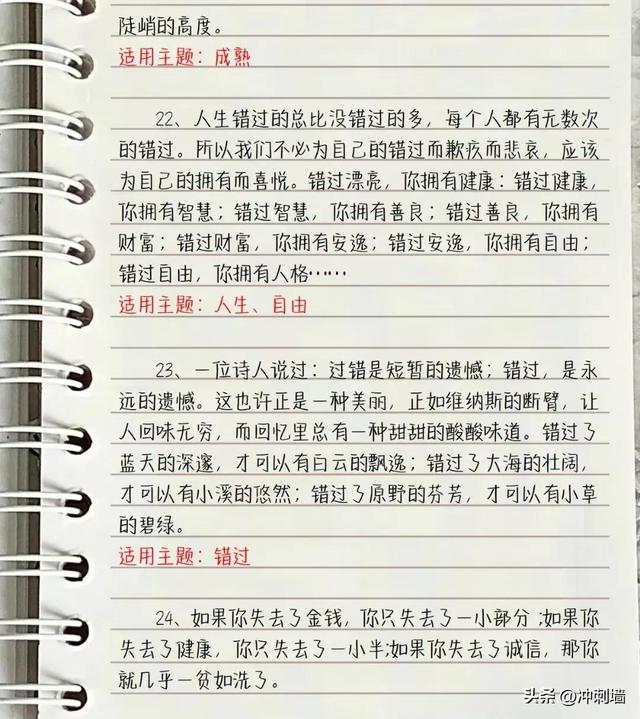 陡峭的高度。
适用主题：成熟
22、人生错过的总比没错过的多，每个人都有无数次
的错过。所以我们不必为自己的错过而歉疚而悲哀，应该
为自己的拥有而喜悦。错过漂亮，你拥有健康：错过健康，
你拥有智慧；错过智慧，你拥有善良；错过善良，你拥有
财富；错过财富，你拥有安逸；错过安逸，你拥有自由；
错过自由，你拥有人格……
适用主题：人生、自由
23、一位诗人说过：过错是短暂的遗憾；错过，是永
远的遗憾。这也许正是一种美丽，正如维纳斯的断臂，让
人回味无穷，而回忆里总有一种甜甜的酸酸味道。错过了
蓝天的深邃，才可以有白云的飘逸；错过了大海的壮阔，
才可以有小溪的悠然；错过了原野的芬芳，才可以有小草
的碧绿。
适用主题：错过
24、如果你失去了金钱，你只失去了一小部分;如果你
失去了健康，你只失去了一小半;如果你失去了诚信，那你
就几乎一贫如洗了。
头条 @冲刺墙